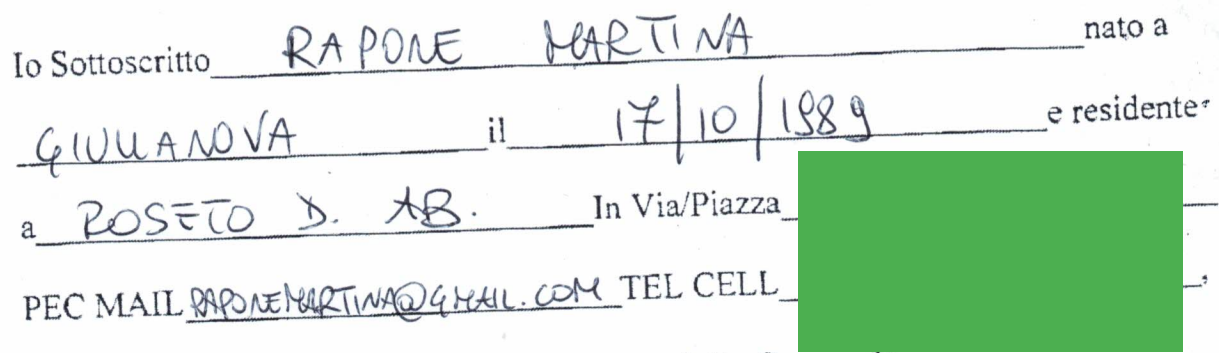 Io Sottoscritto RAPONE MARTINA nato a
GIULIANOVA il 17/10/1989 e residente
a ROSETO D. AB. In Via/Piazza
PEC MAIL RAPONEMARTINA@GMAIL.COM TEL CELL